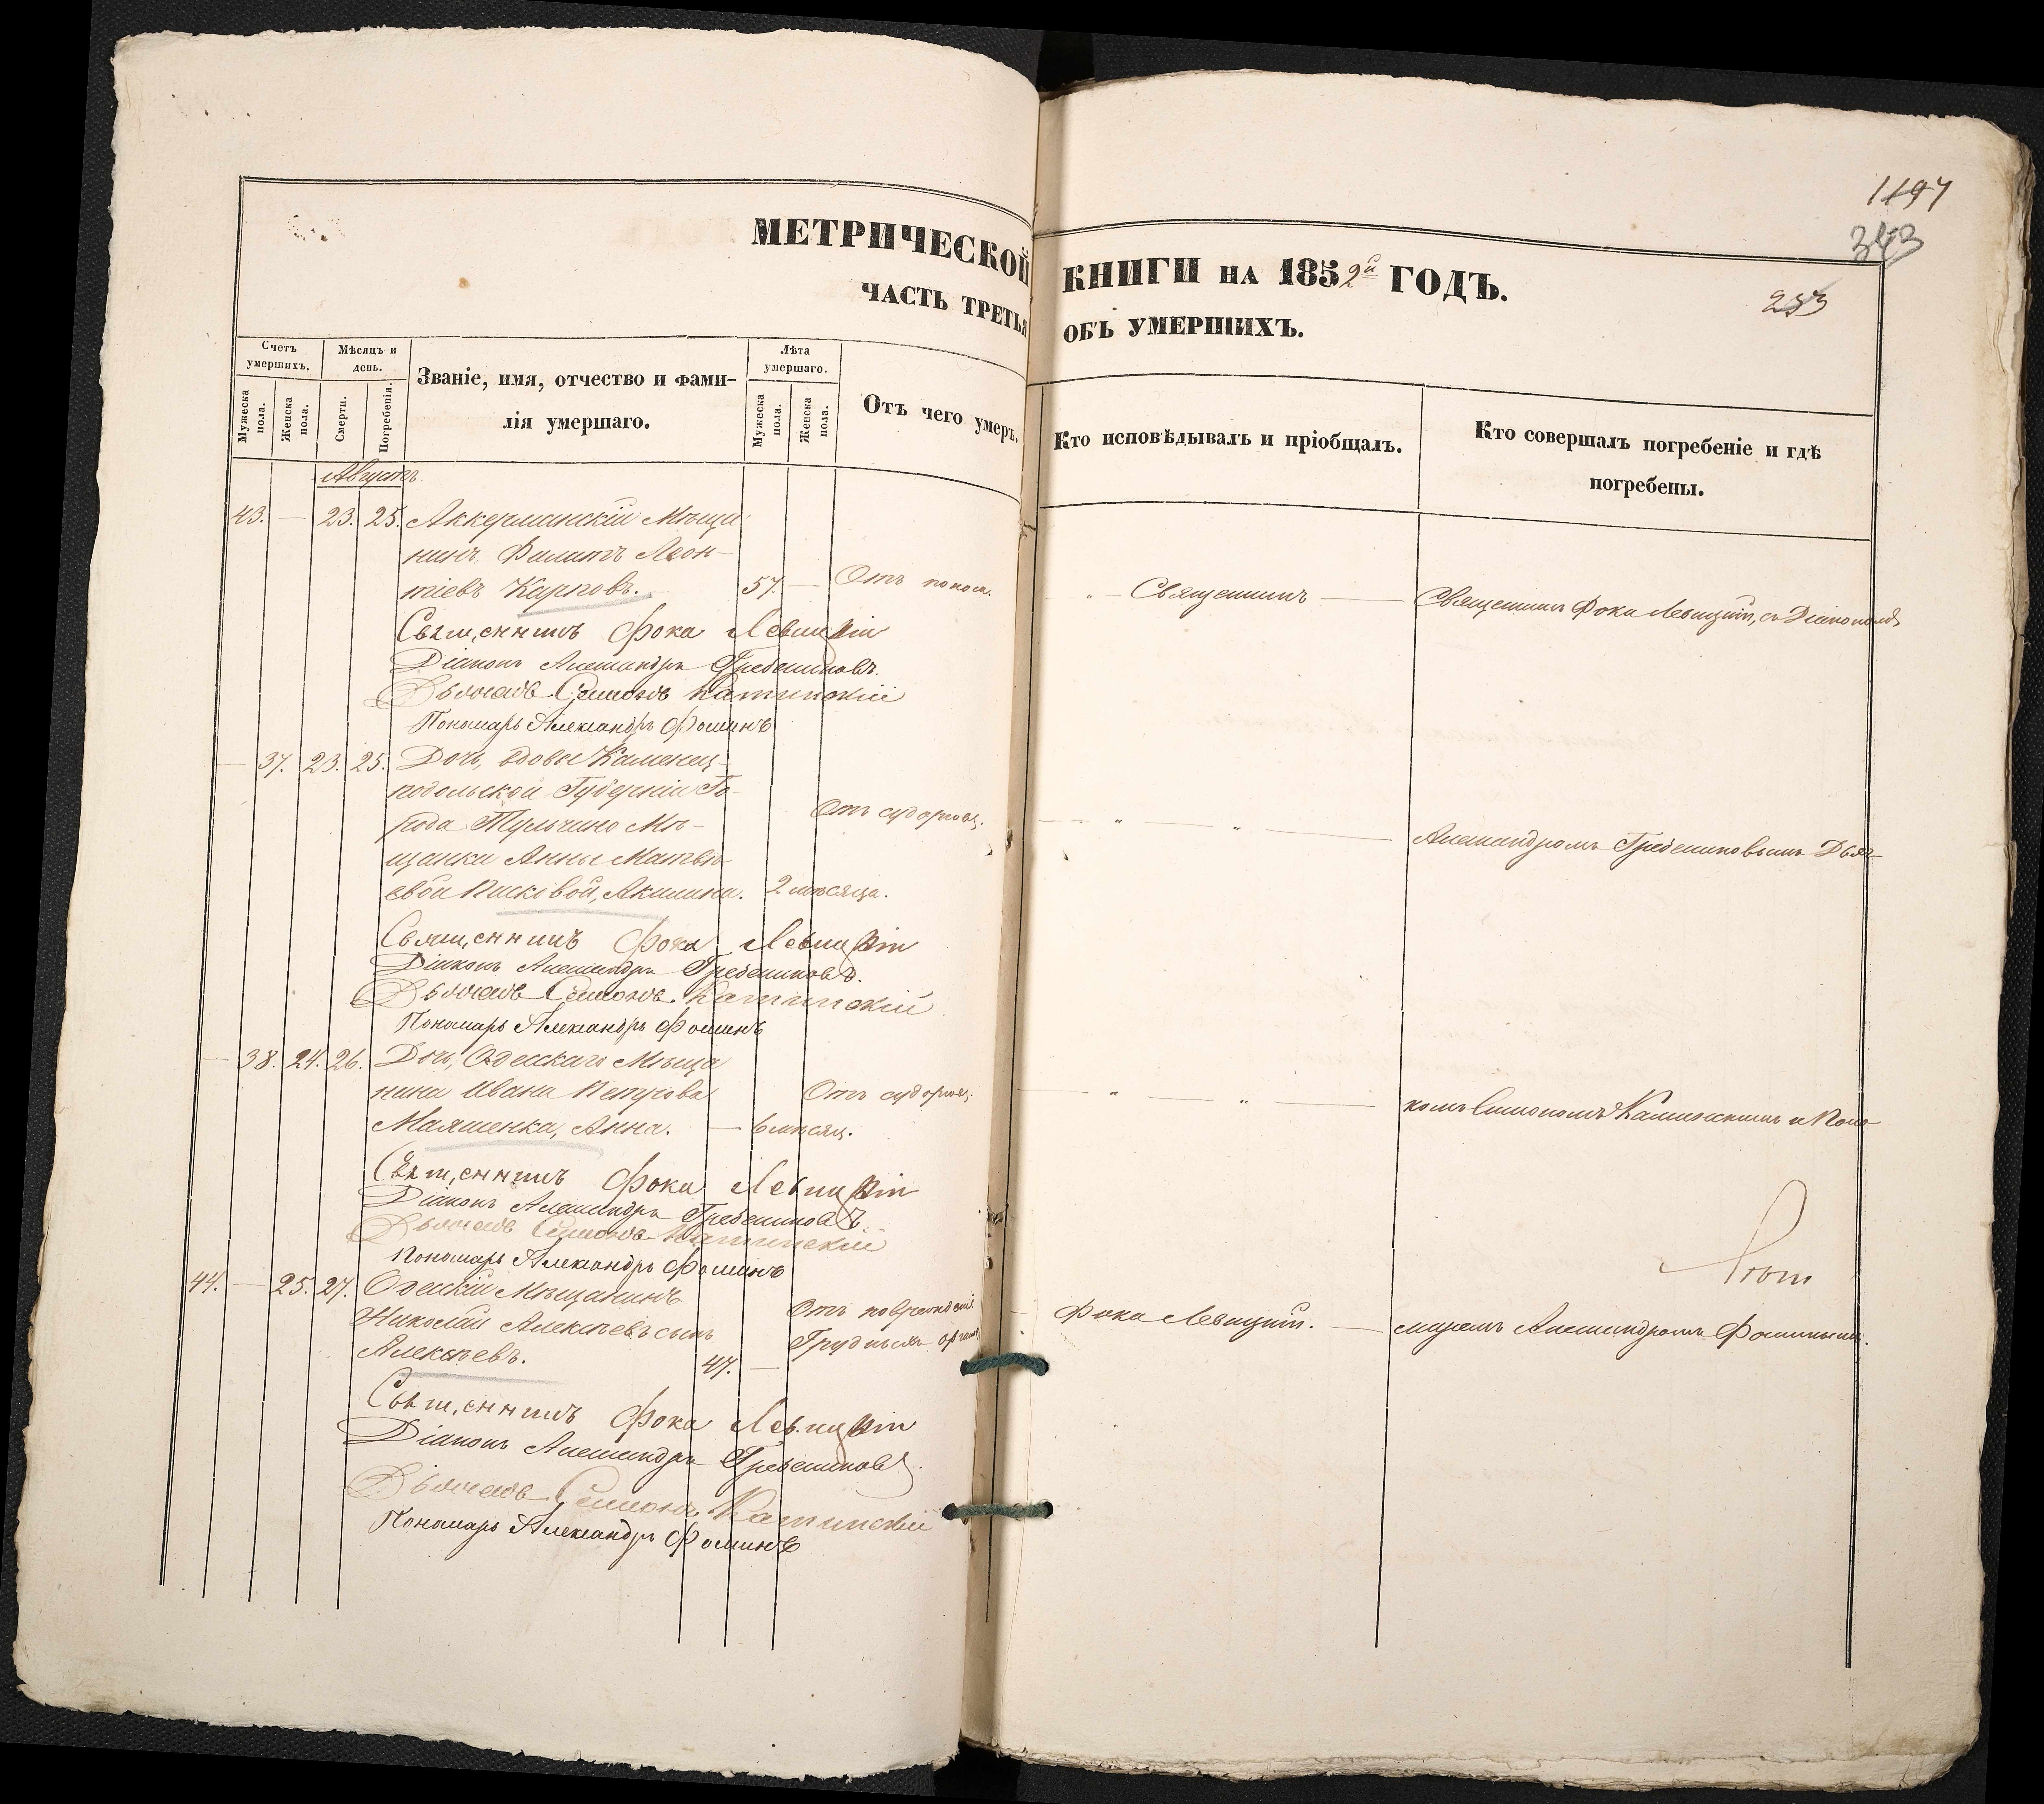 1197
343
253
МЕТРИЧЕСКОЙ КНИГИ НА 1852й ГОДЪ.
ЧАСТЬ ТРЕТЬЯ ОБЪ УМЕРШИХЪ.
Счетъ умершихъ.
Мужеска пола.
Женска пола.
Мѣсяцъ и день.
Смерти.
Погребенія.
Званіе, имя, отчество и фами-
лія умершаго.
Лѣта умершаго.
Мужеска пола.
Женска пола.
Отъ чего умеръ.
Кто исповѣдывалъ и пріобщалъ.
Кто совершалъ погребеніе и гдѣ
погребены.
Августъ.
43. — 23. 25. Аккерманскій Мѣща
нинъ Филатъ Леон-
тіевъ Карповъ. 57. — Отъ поноса. " — Священникъ — Священникъ Фока Левицкій, съ Діакономъ
Священникъ Фока Левицкій
Діаконъ Александръ Гребенниковъ.
Дьячекъ Симеонъ
Пономарь Александръ Фоминъ
— 37. 23. 25. Дочь, вдовы Каменец-
подольской Губерніи Го-
рода Тульчино Мѣ-
щанки Анны Матвѣ-
евой Акилина. 2 мѣсяца. Отъ судорогъ. — " — " — Александромъ Гребенниковымъ Дьяч-
Священникъ Фока Левицкій
Діаконъ Александръ Гребенниковъ.
Дьячекъ Симеонъ
Пономарь Александръ Фоминъ
— 38. 24. 26. Дочь, Одесскаго Мѣща
нина Ивана Петрова
Маяшенка, Анна. — 6 мѣсяц. Отъ судорогъ. — " — " — комъ Симеономъ и Поно-
Священникъ Фока Левицкій
Діаконъ Александръ Гребенниковъ.
Дьячекъ Симеонъ
Пономарь Александръ Фоминъ
44. — 25. 27. Одесскій Мѣщанинъ
Николай Алексѣевъ сынъ
Алексѣевъ. 47. — Отъ поврежденія
Грудныхъ орган. Фока Левицкій. — маремъ Александромъ Фоминымъ.
Священникъ Фока Левицкій
Діаконъ Александръ Гребенниковъ.
Дьячекъ Симеонъ
Пономарь Александръ Фоминъ